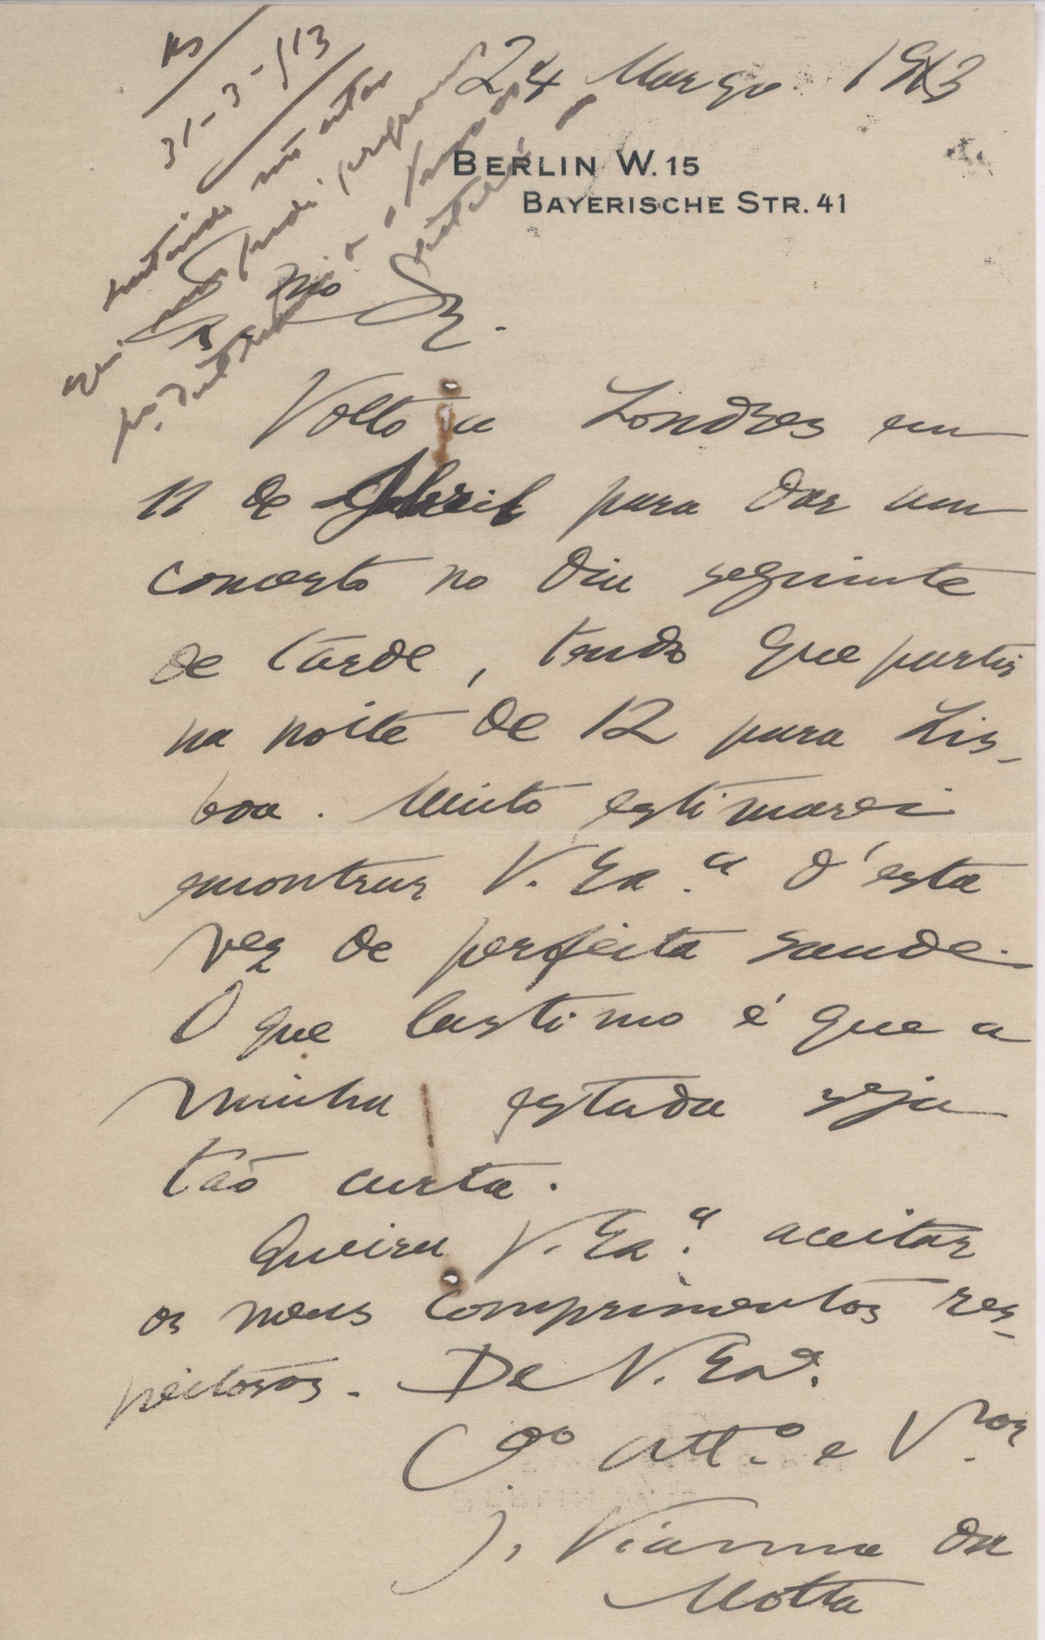 Rs
31-3-913
24 Março 1913
BERLIN W. 15
BAYERISCHE STR. 41
Sr.
Volto a Londres em
11 de Abril para dar um
concerto no dia seguinte
de tarde, tendo que partir
na noite de 12 para Lis-
boa. Muito estimarei
encontrar V. Exa. d'esta
vez de perfeita saude.
O que lastimo é que a
minha estada seja
tão curta.
Queira V. Exa. aceitar
os meus comprimentos res-
peitosos. De V. Exa.
Cdo. Atto. e Vor.
J. Vianna da
Motta